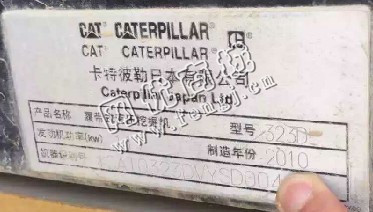 CAT CATERPILLAR
CAT CATERPILLAR
卡特彼勒日本有限公司
Caterpillar Japan Ltd.
产品名称 履带式液压挖掘机 型号 323D
发动机功率(kW) 制造年份 2010